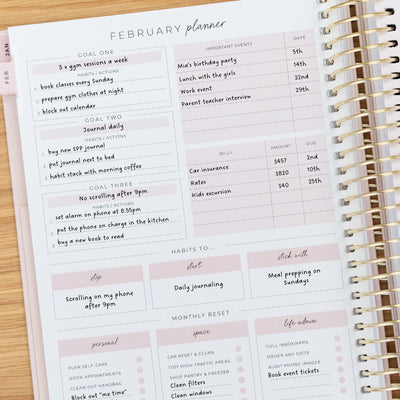 FEBRUARY planner
JAN
FEB
GOAL ONE
3 x gym sessions a week
HABITS / ACTIONS
1. book classes every Sunday
2. prepare gym clothes at night
3. block out calendar
GOAL TWO
Journal daily
HABITS / ACTIONS
1. buy new SPP journal
2. put journal next to bed
3. habit stack with morning coffee
GOAL THREE
No scrolling after 9pm
HABITS / ACTIONS
1. set alarm on phone at 8.55pm
2. put the phone on charge in the kitchen
3. buy a new book to read
IMPORTANT EVENTS DATE
Mia's birthday party 5th
Lunch with the girls 14th
Work event 22nd
Parent teacher interview 29th
BILLS AMOUNT DUE
Car insurance $457 2nd
Rates $820 10th
Kids excursion $40 25th
HABITS TO...
stop
Scrolling on my phone
after 9pm
start
Daily journaling
stick with
Meal prepping on
Sundays
MONTHLY RESET
personal
PLAN SELF-CARE
BOOK APPOINTMENTS
CLEAN OUT HANDBAG
Block out "me time"
space
CAR RESET & CLEAN
TIDY HIGH-TRAFFIC AREAS
SHOP PANTRY & FREEZER
Clean filters
Clean windows
life admin
CULL INBOX/APPS
ORDER ANY GIFTS
AUDIT PHONE IMAGES
Book event tickets